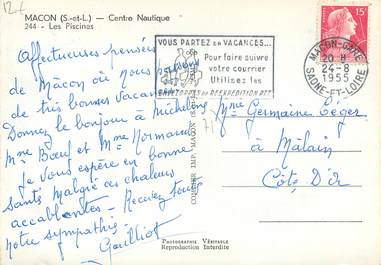 12€
MACON (S.-et-L.) — Centre Nautique
244 - Les Piscines
Affectueuses pensées
de Mâcon où nous passons
de très bonnes vacances
Donnez le bonjour à
Mme Bœuf et Mme Normand
je vous espère en bonne
santé malgré ces chaleurs
accablantes - Recevez toute
notre sympathie.
Gailliot
VOUS PARTEZ EN VACANCES...
Pour faire suivre
votre courrier
Utilisez les
ENVELOPPES DE REEXPEDITION PTT
15F
MACON-GARE
20 H
24-8
1955
SAONE-ET-LOIRE
COMBIER IMP. MACON (S.-et-L.)
Mme Germaine Léger
à Mâlain
Côte D'Or
PHOTOGRAPHIE VÉRITABLE
Reproduction Interdite